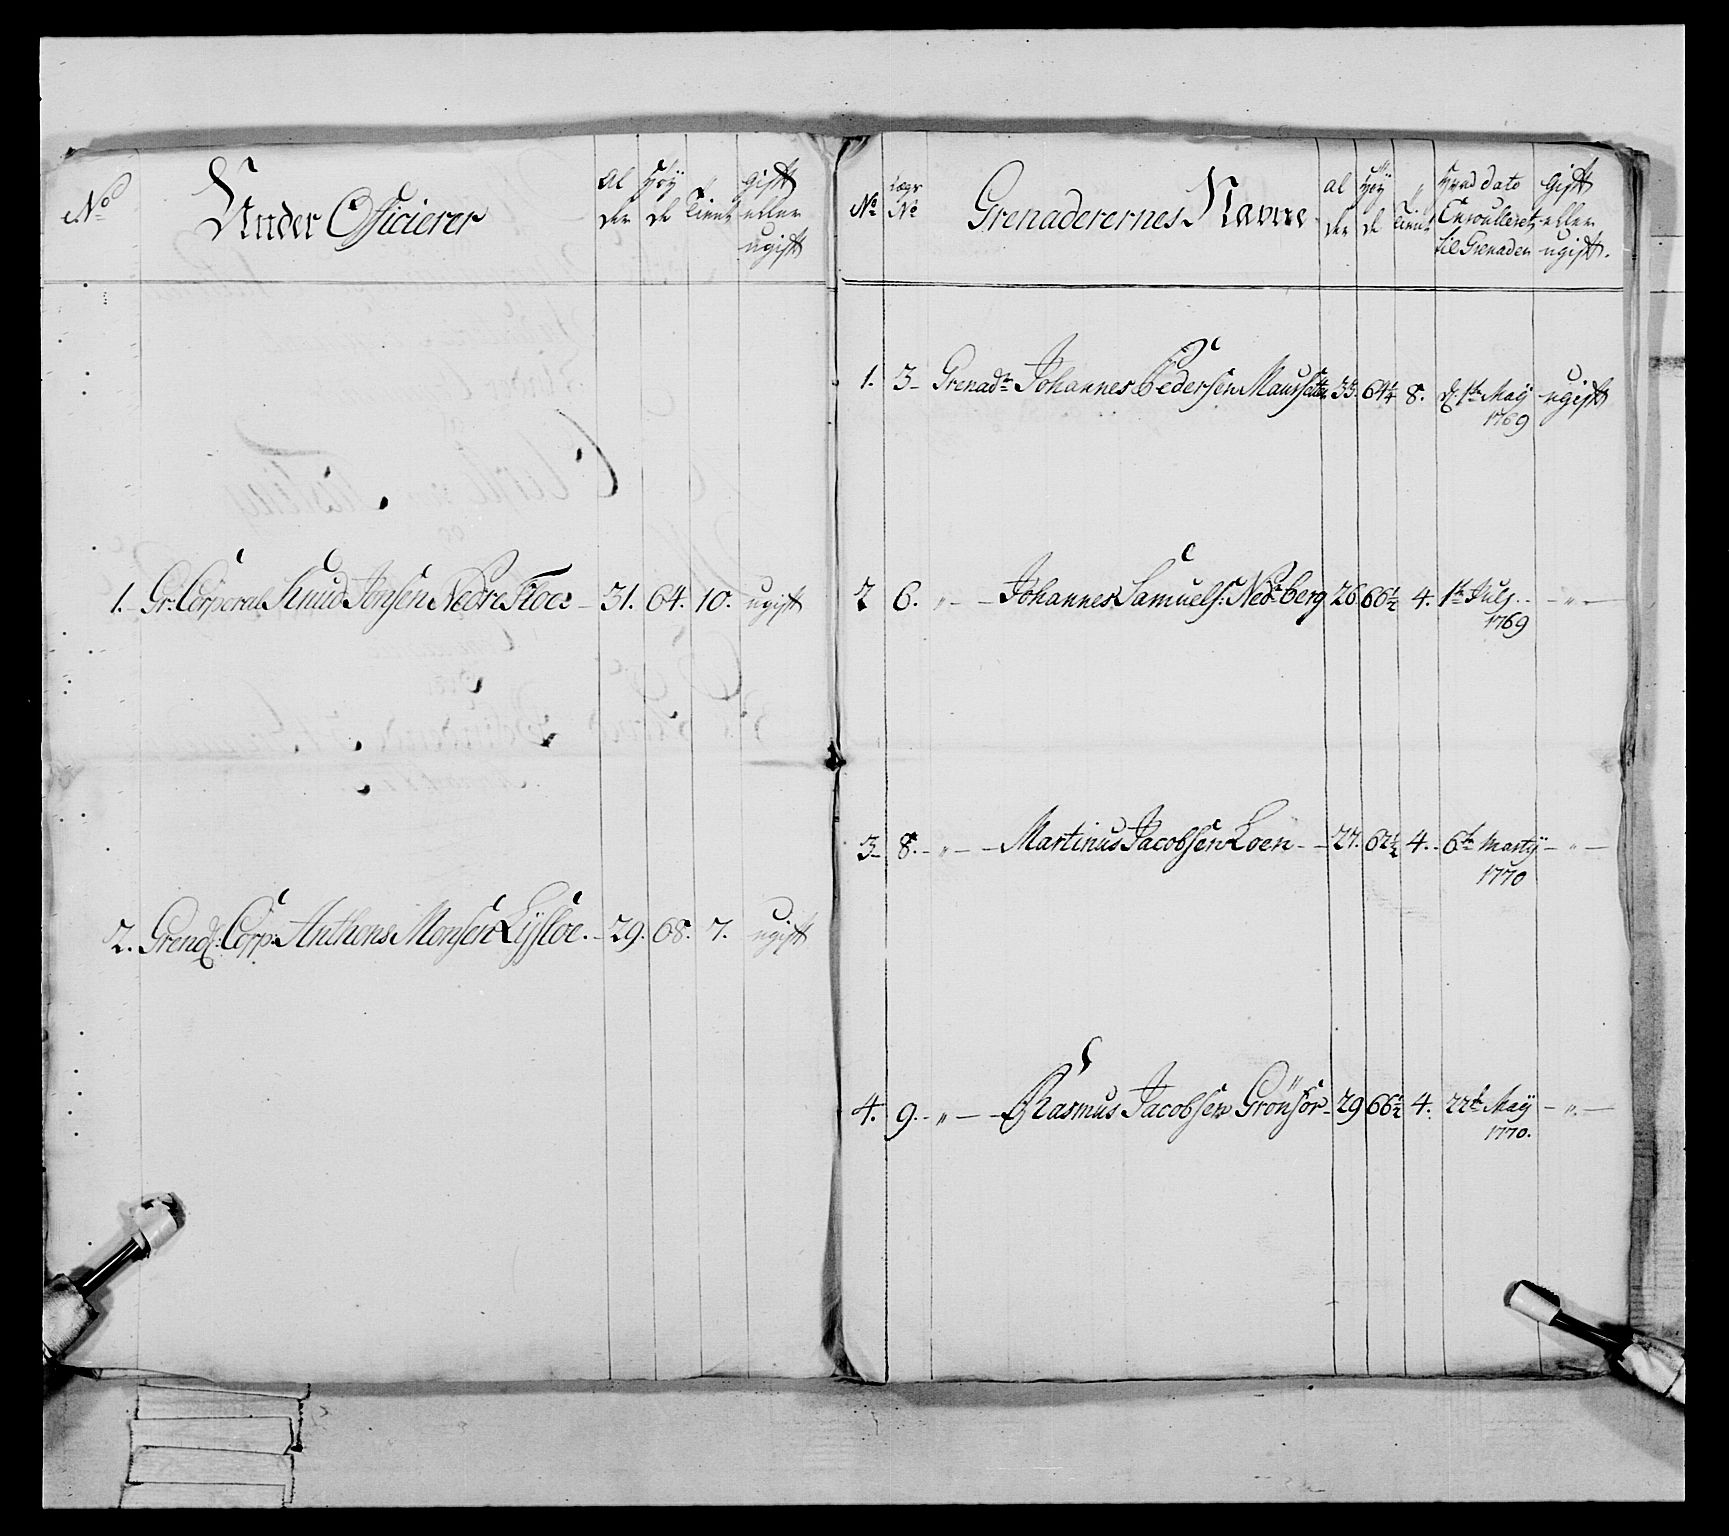 No
Under Officierer
Al der
Høy de
Tient
gift eller ugift
1. Gr: Corporal Knud Jonsen Nedre Floe 31. 64. 10. ugift
2. Grend: Corp: Anthons Monsen Lysloe. 29. 68. 7. ugift
No
Lægs No
Grenaderernes Navne
Al der
Høy de
Tient
dato Enroulleret til Grenader
Gift eller ugift.
1. 3 Grenadr Johannes Pedersen Maursetter 33. 64 1/4 8. d. 1te Maÿ ugift
1769
2 6. " Johannes Samuels: Nedrberg 26 66 1/2 4. 1te July "
1769
3 8. " Martinus Jacobsen Loen 27. 62 1/2 4. 6te Martÿ "
1770
4. 9. " Rasmus Jacobsen Grönsör 29 66 1/2 4. 22te Maÿ "
1770.